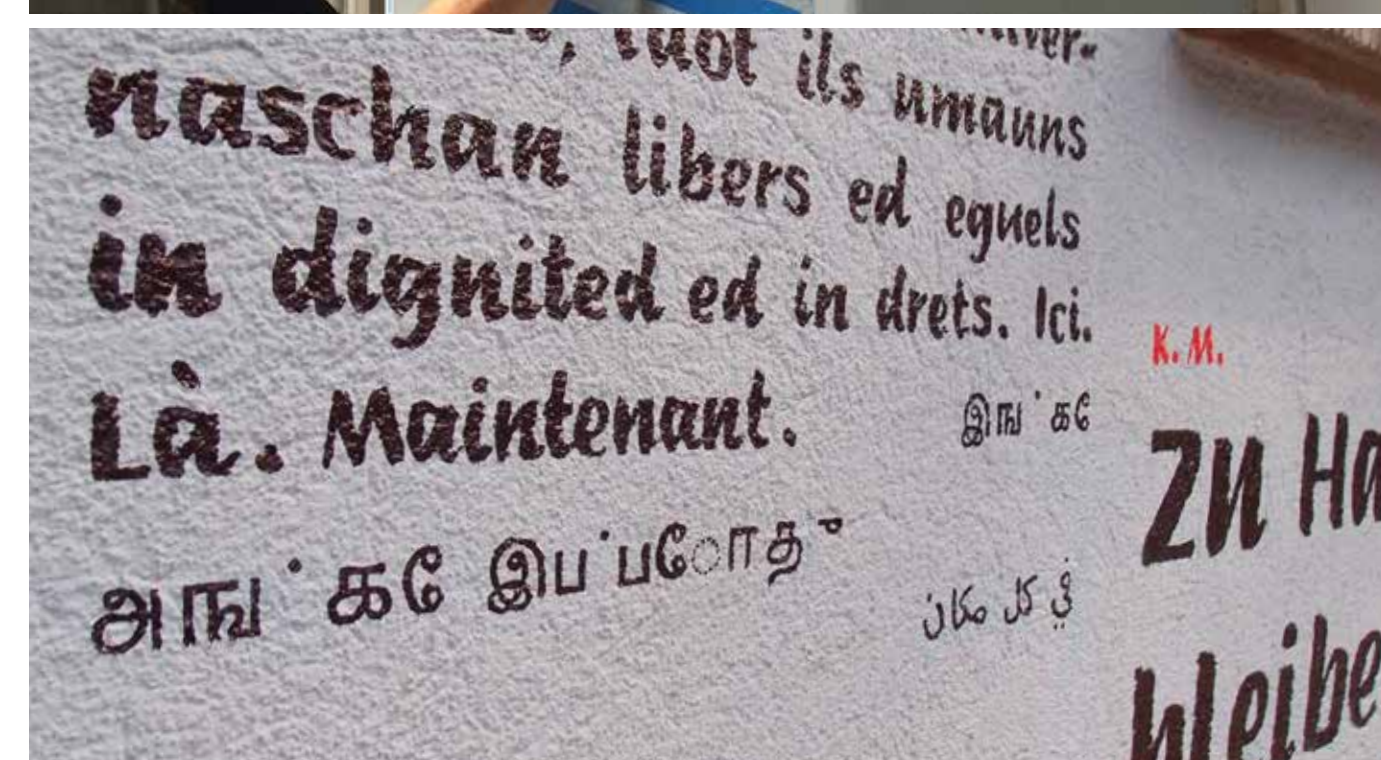 tuot ils umauns
naschan libers ed eguels
in dignited ed in drets. Ici.
Là. Maintenant. இங்கே
அங்கே இப்போது في كل مكان
K. M.
Zu